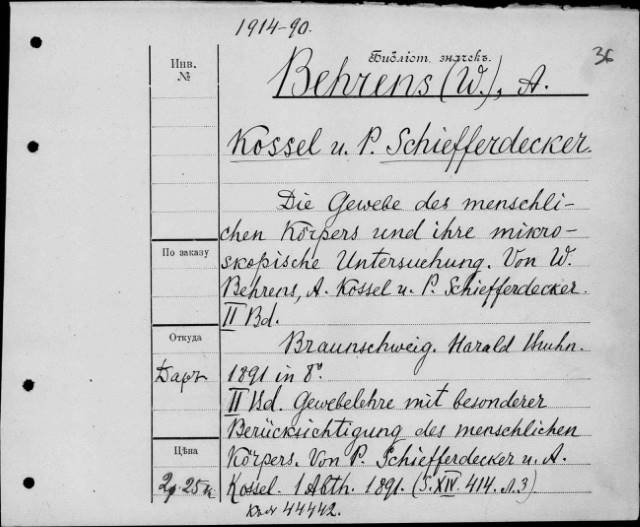 1914-90.
36
Библіот. значекъ.
Инв.
№
Behrens (W.), A.
Kossel u. P. Schiefferdecker.
Die Gewebe des menschli-
chen Körpers und ihre mikro-
По заказу
skopische Untersuchung. Von W.
Behrens, A. Kossel u. P. Schiefferdecker.
II Bd.
Откуда
Braunschweig. Harald Bruhn.
Даръ
1891 in 8°.
II Bd. Gewebelehre mit besonderer
Berücksichtigung des menschlichen
Цѣна
Körpers. Von P. Schiefferdecker u. A.
2р. 25к
Kossel. 1 Abth. 1891. (S. XIV. 414. л. 3)
44442.